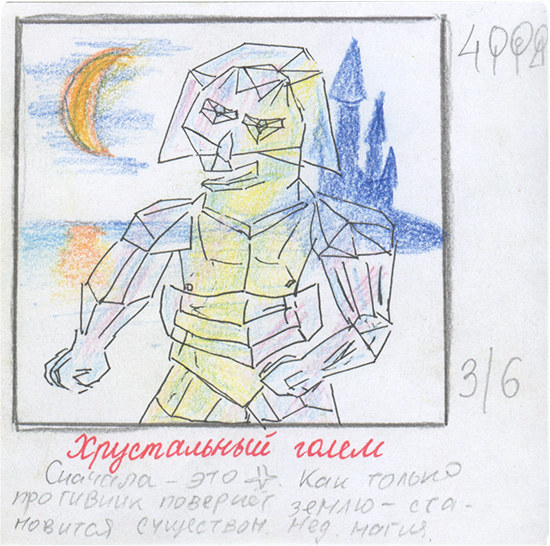 4
3/6
Хрустальный голем
Сначала - это ☆. Как только
противник повернёт землю - ста-
новится существом. Нед. магия.